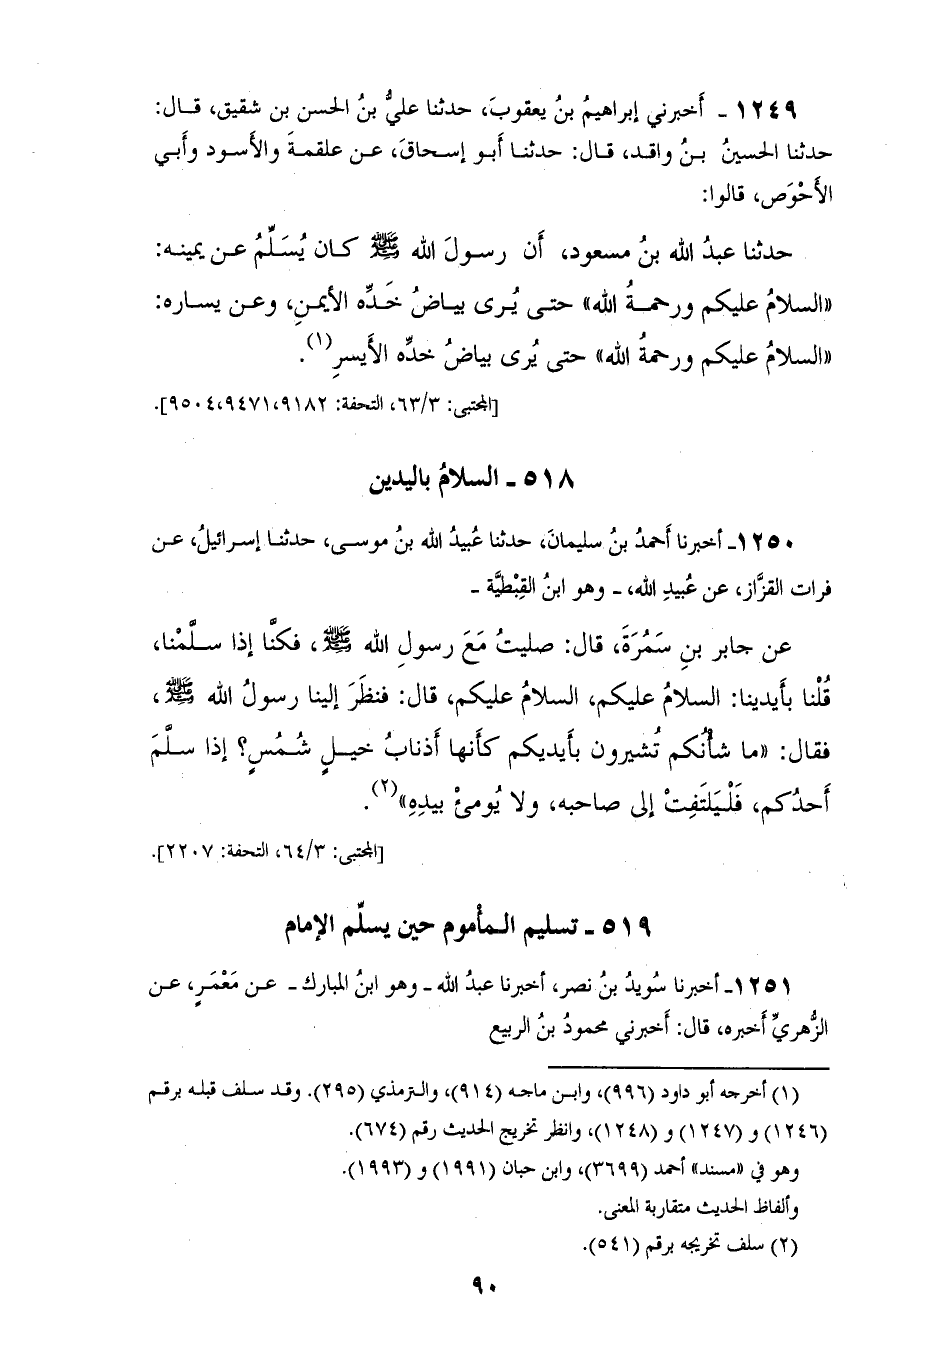 ١٢٤٩ ـ أَخبرني إبراهيمُ بنُ يعقوبَ، حدثنا عليُّ بنُ الحسن بن شقيق، قال:
حدثنا الحسينُ بنُ واقد، قال: حدثنا أبو إسحاقَ، عن علقمةَ والأَسود وأَبي
الأَحْوَص، قالوا:
حدثنا عبدُ الله بنُ مسعود، أَن رسولَ الله ﷺ كان يُسَلِّمُ عن يمينه:
«السلامُ عليكم ورحمةُ الله» حتى يُرى بياضُ خَدِّه الأيمنِ، وعن يساره:
«السلامُ عليكم ورحمةُ الله» حتى يُرى بياضُ خدِّه الأَيسرِ(١).
[المجتبى: ٦٣/٣، التحفة: ٩١٨٢،٩٤٧١،٩٥٠٤].
٥١٨ ـ السلامُ باليدين
١٢٥٠ـ أخبرنا أَحمدُ بنُ سليمانَ، حدثنا عُبيدُ الله بنُ موسى، حدثنا إسرائيلُ، عن
فرات القزَّاز، عن عُبيدِ الله، ـ وهو ابنُ القِبْطيَّة ـ
عن جابر بنِ سَمُرَةَ، قال: صليتُ مَعَ رسولِ الله ﷺ، فكنَّا إذا سلَّمْنا،
قُلْنا بأَيدينا: السلامُ عليكم، السلامُ عليكم، قال: فنظَرَ إلينا رسولُ الله ﷺ،
فقال: «ما شأْنُكم تُشيرون بأَيديكم كأَنها أذنابُ خيلٍ شُمُسٍ؟ إذا سلَّمَ
أَحدُكم، فَلْيَلتَفِتْ إلى صاحبه، ولا يُومئْ بيدِهِ»(٢).
[المجتبى: ٦٤/٣، التحفة: ٢٢٠٧].
٥١٩ ـ تسليم المأموم حين يسلّم الإمام
١٢٥١ـ أخبرنا سُويدُ بنُ نصر، أخبرنا عبدُ الله ـ وهو ابنُ المبارك ـ عن مَعْمَرٍ، عن
الزُّهريِّ أَخبره، قال: أَخبرني محمودُ بنُ الربيع
(١) أخرجه أبو داود (٩٩٦)، وابن ماجه (٩١٤)، والترمذي (٢٩٥). وقد سلف قبله برقم
(١٢٤٦) و (١٢٤٧) و (١٢٤٨)، وانظر تخريج الحديث رقم (٦٧٤).
وهو في «مسند» أحمد (٣٦٩٩)، وابن حبان (١٩٩١) و (١٩٩٣).
وألفاظ الحديث متقاربة المعنى.
(٢) سلف تخريجه برقم (٥٤١).
٩٠